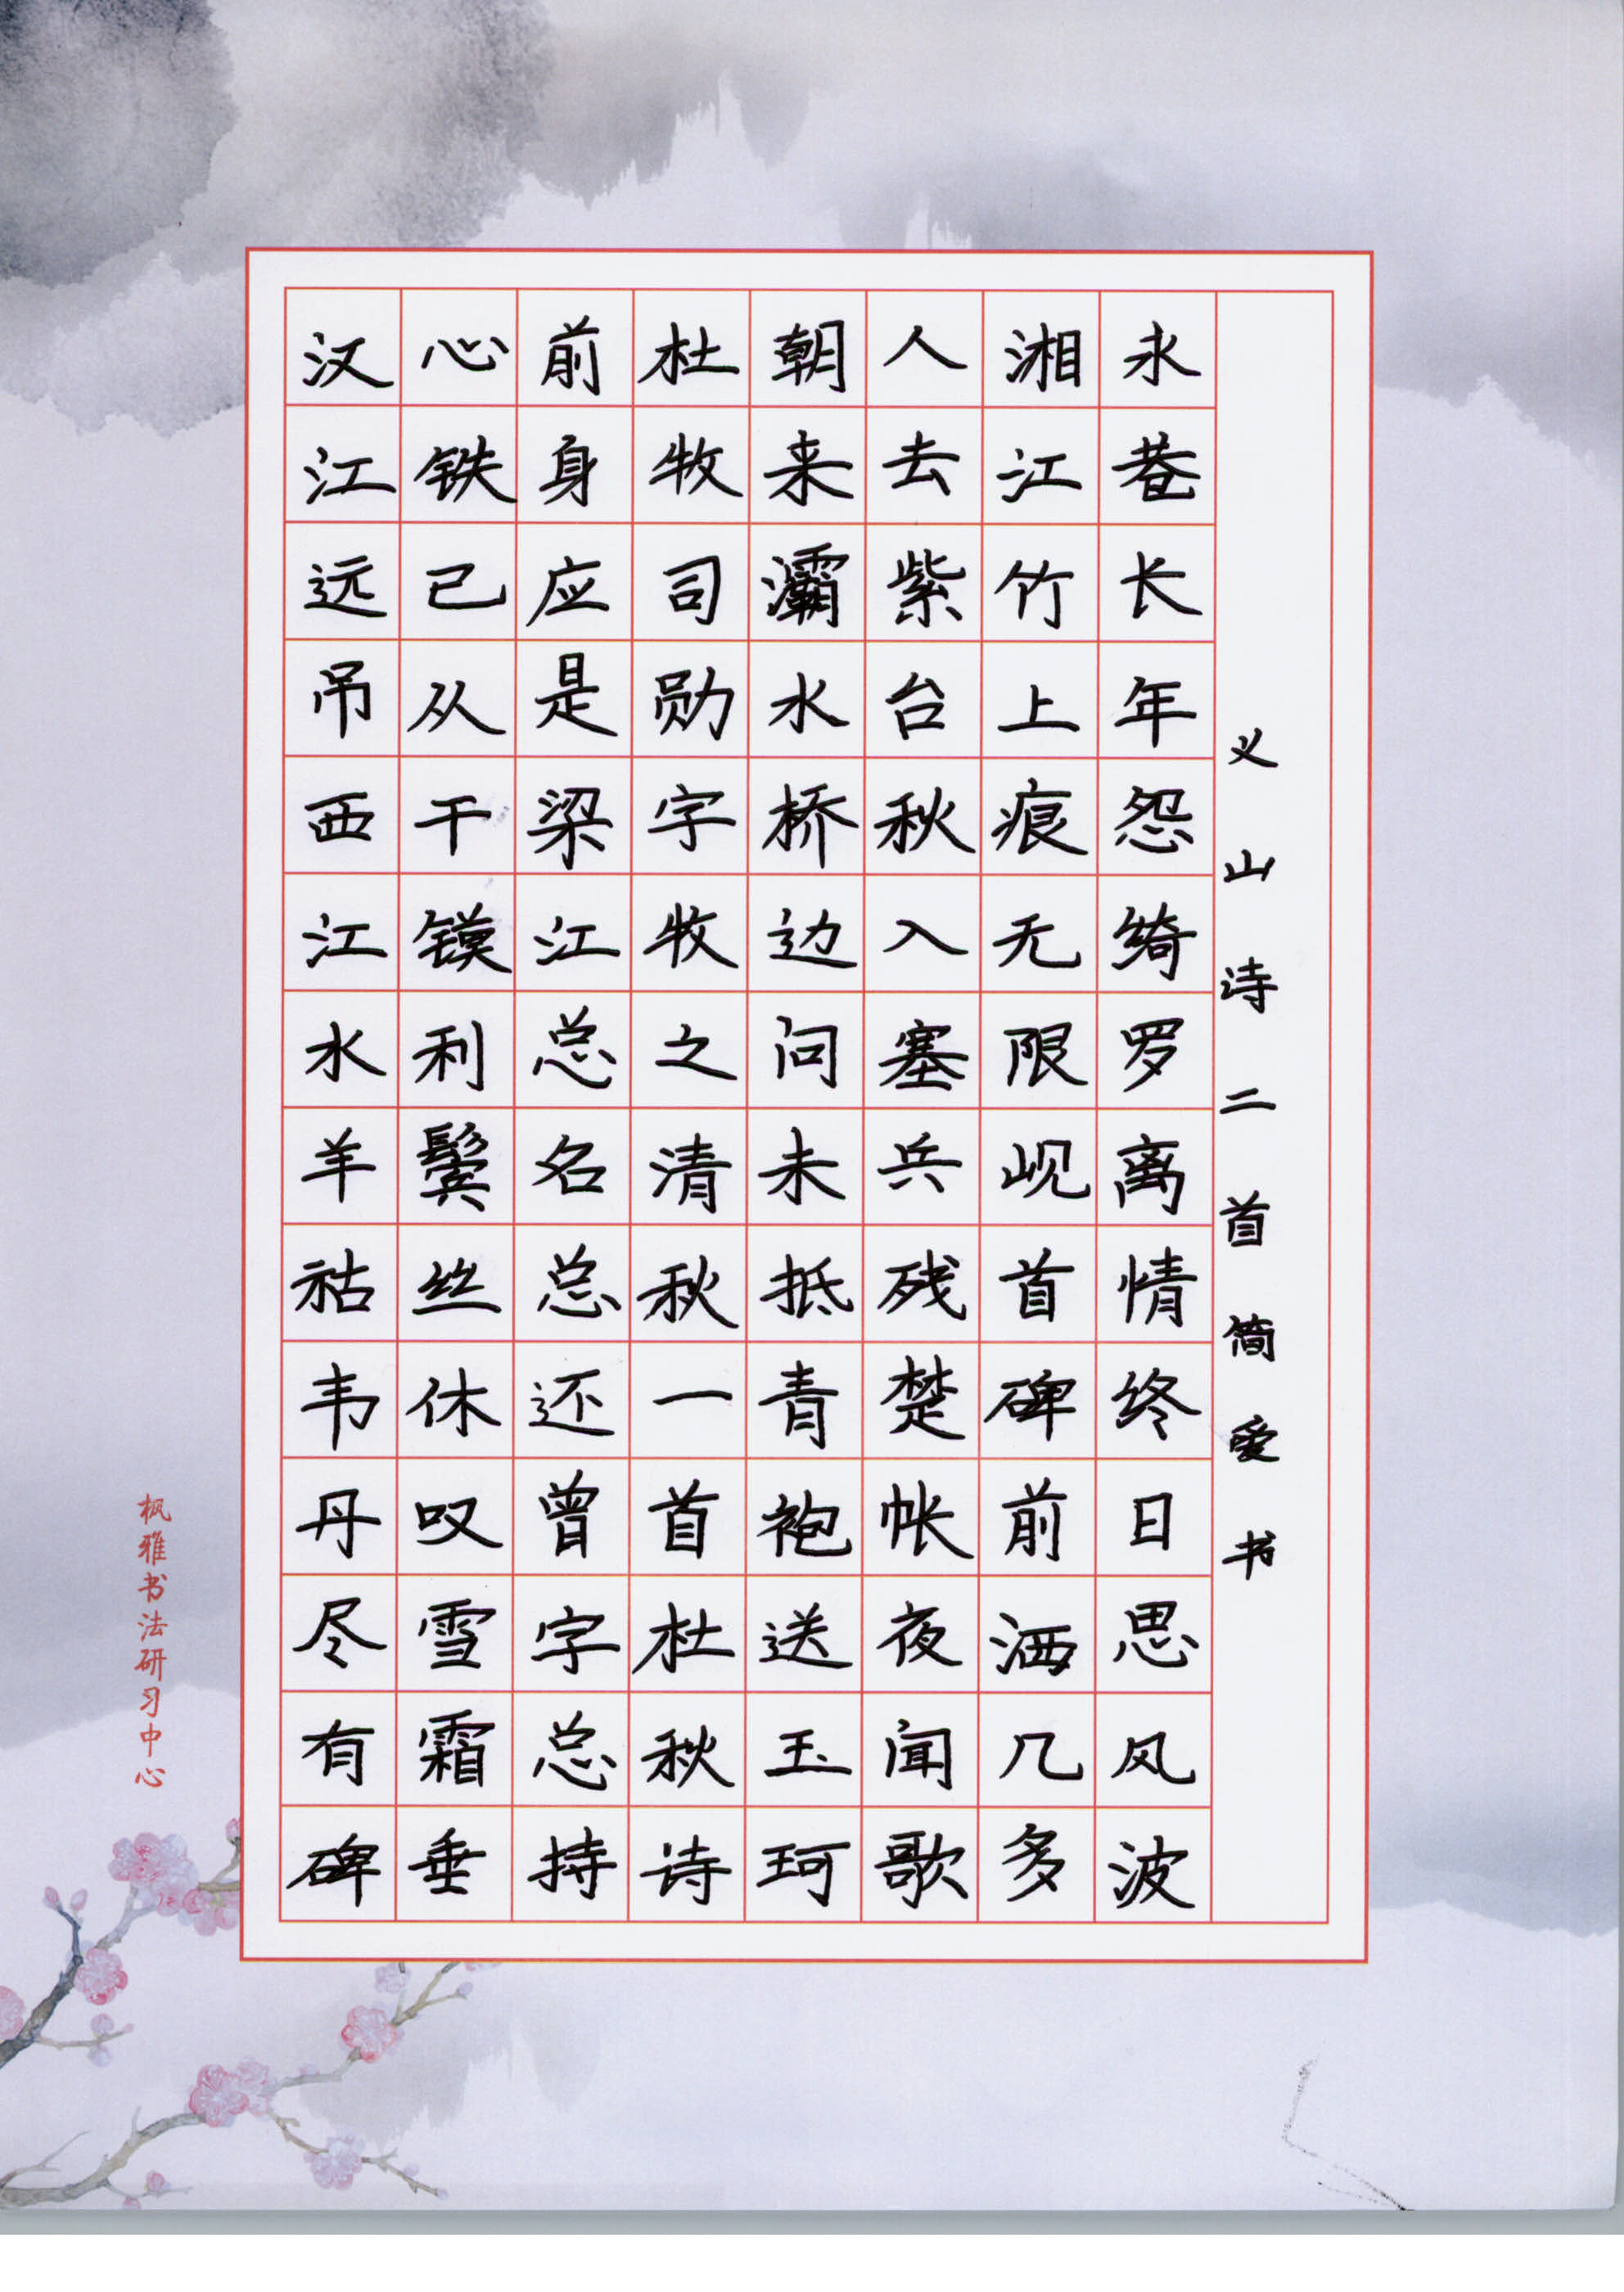 义山诗二首简爱书
永巷长年怨绮罗离情终日思风波
湘江竹上痕无限岘首碑前洒几多
人去紫台秋入塞兵残楚帐夜闻歌
朝来灞水桥边问未抵青袍送玉珂
杜牧司勋字牧之清秋一首杜秋诗
前身应是梁江总名总还曾字总持
心铁己从干镆利鬓丝休叹雪霜垂
汉江远吊西江水羊祜韦丹尽有碑
枫雅书法研习中心